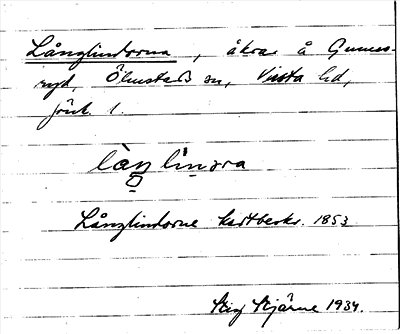 Långlindorna, åkrar å Gunnes-
ryd, Ölmstads sn, Vista hd,
Jönk. l.
Långlindorne kartbeskr. 1853
Stig Hjärne 1934.